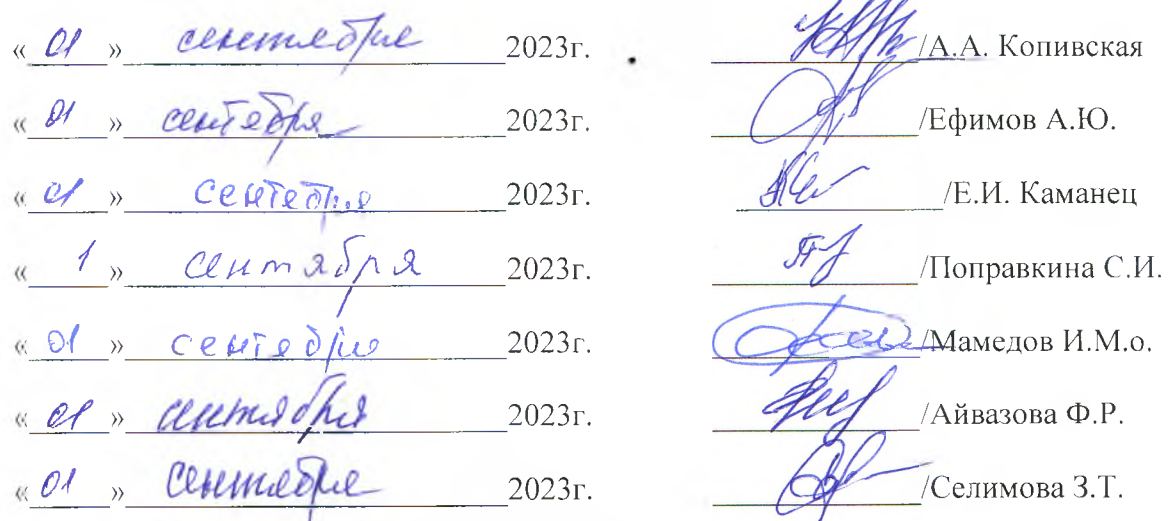 « 01 » сентября 2023г. /А.А. Копивская
« 01 » сентября 2023г. /Ефимов А.Ю.
« 01 » сентября 2023г. /Е.И. Каманец
« 1 » сентября 2023г. /Поправкина С.И.
« 01 » сентября 2023г. /Мамедов И.М.о.
« 01 » сентября 2023г. /Айвазова Ф.Р.
« 01 » сентября 2023г. /Селимова З.Т.